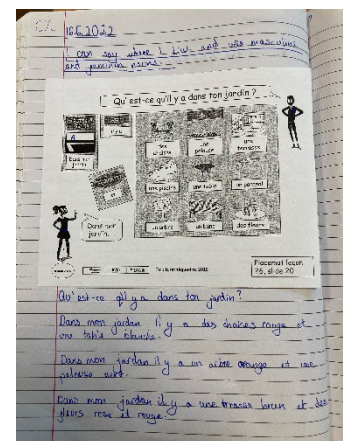 16.6.2022
I can say where I live and use masculine
and feminine nouns.
Qu'est-ce qu'il y a dans ton jardin ?
il y a
Dans mon
jardin
des
chaises
une
pelouse
une
terrasse
une piscine
une table
un parasol
un arbre
un banc
des fleurs
Dans mon
jardin,
Placemat leçon
26, slide 20
Qu'est-ce qu'il y a dans ton jardin?
Dans mon jardan il y a des chaises rouge et
une table blanche.
Dans mon jardan il y a un arbre orange et une
pelouse vert.
Dans mon jardan il y a une trasse brun et des
fleurs rose et rouge.